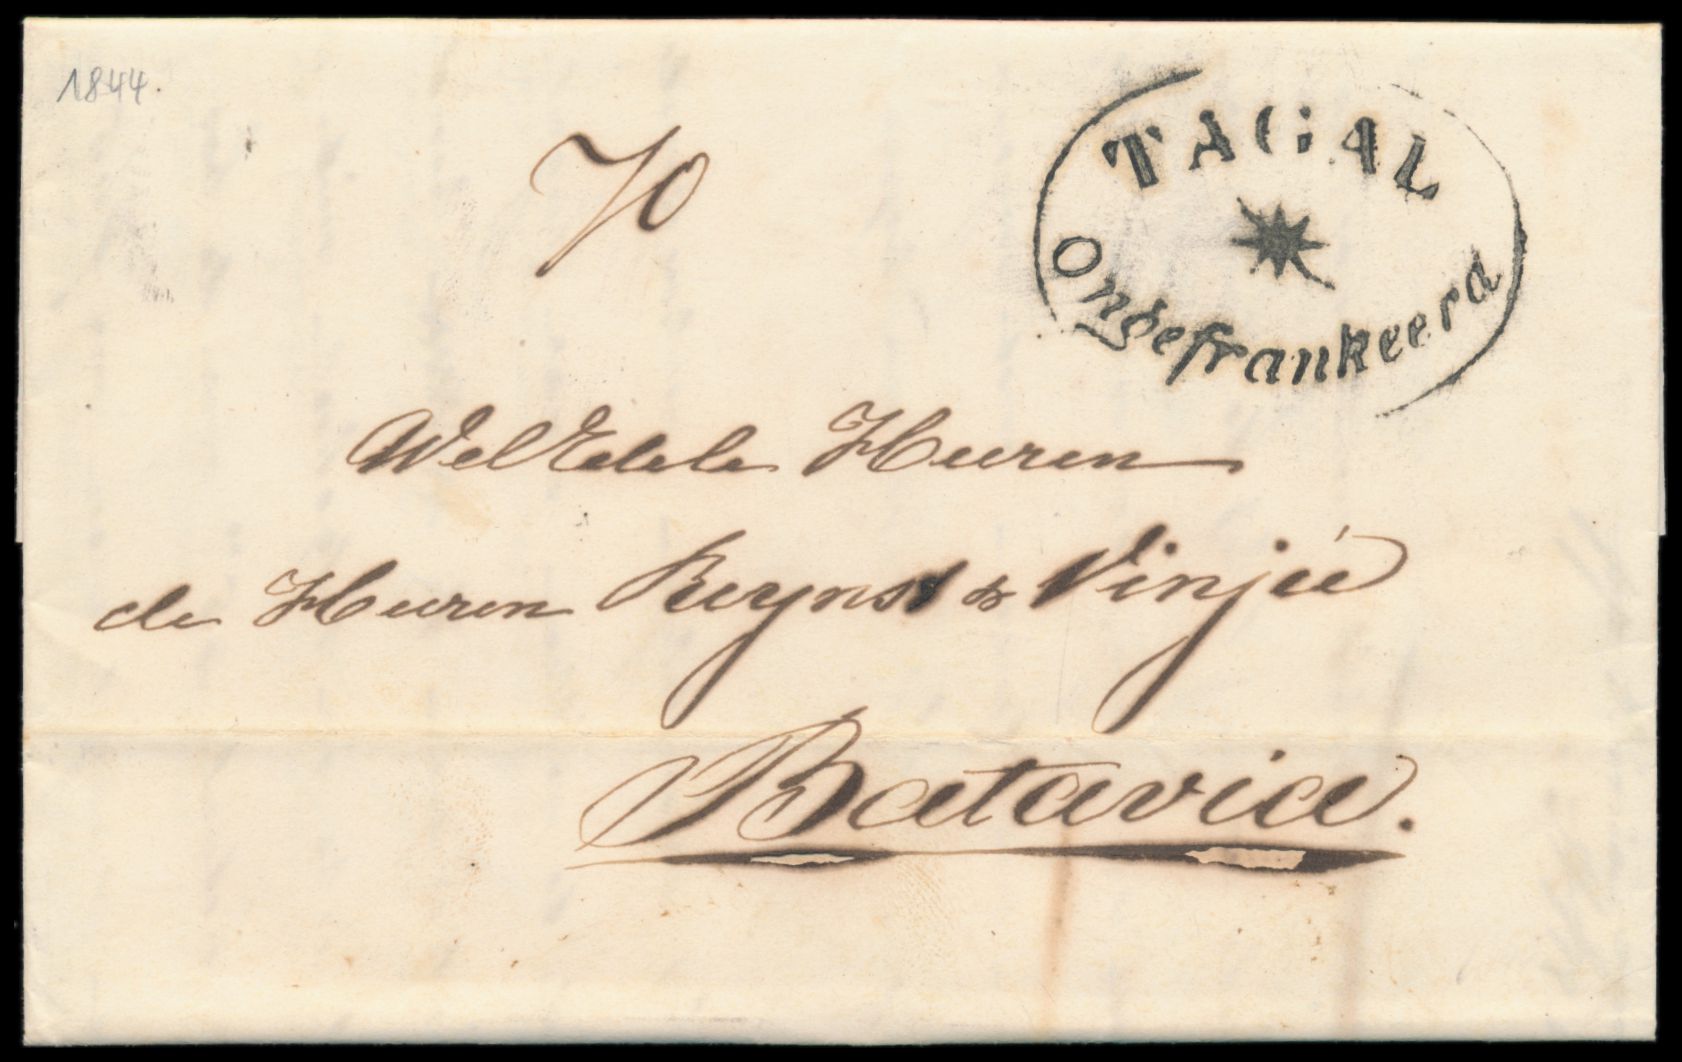 1844.
70
TAGAL
Ongefrankeerd
WelEdele Heeren
de Heeren Reynst & Vinju
Batavia.